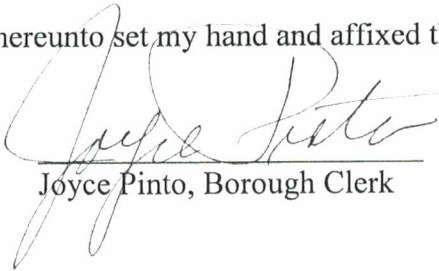 hereunto set my hand and affixed t
Joyce Pinto
Joyce Pinto, Borough Clerk